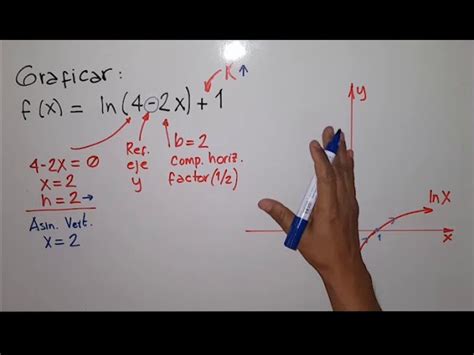 Graficar:
f(x) = ln(4-2x)+1
K ↑
4-2x = 0
x = 2
h = 2 →
Asin. Vert.
x = 2
Ref.
eje
y
b = 2
comp. horiz.
factor (1/2)
y
ln x
1
x